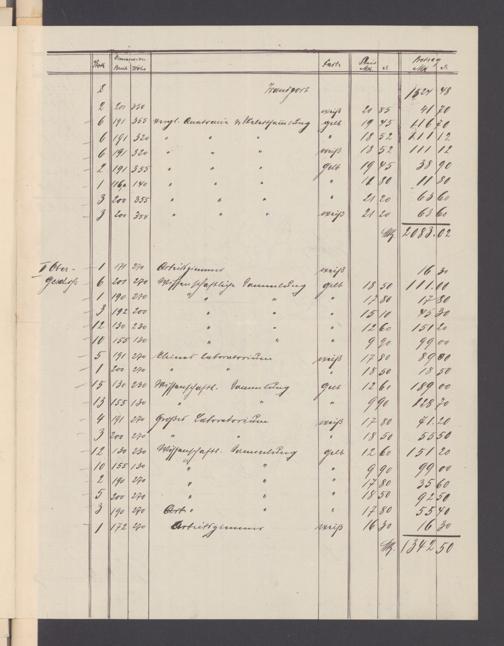 Stück Dimensionen Farbe Preis Betrag
Breit Höhe Mk. d. Mk. d.
Transport 1524 48
2 201 350 weiß 20 85 41 70
6 191 355 vergl. Anatomie u. Skelettsammlung gelb 19 45 116 70
6 191 320 " " " " 18 52 111 12
6 191 320 " " " weiß 18 52 111 12
2 191 355 " " " gelb 19 45 38 90
1 140 " " " " 11 80
3 200 355 " " " " 21 20 63 60
3 200 355 " " " weiß 21 20 63 60
Mk. 2083.02
I Ober- 1 171 270 Arbeitszimmer weiß 16 30
Geschoß 6 201 270 Wissenschaftliche Sammlung gelb 18 50 111.00
1 190 270 " " " 17 80 17 80
3 192 200 " " " 15 10 45 30
12 130 230 " " " 12 60 151 20
10 155 130 " " " 9 90 99 00
5 191 270 Kleines Laboratorium weiß 17 80 89 00
1 200 270 " " " 18 50 18 50
15 130 230 Wissenschaftl. Sammlung gelb 12 60 189 00
13 155 130 " " " 9 90 128 70
4 191 270 Großes Laboratorium weiß 17 80 71.20
3 200 270 " " " 18 50 55 50
12 130 230 Wissenschaftl. Sammlung gelb 12 60 151 20
10 155 130 " " " 9 90 99 00
2 190 270 " " " 17 80 35 60
5 200 270 " " " 18 50 92 50
3 190 270 " " " 17 80 55 40
1 172 270 Arbeitszimmer weiß 16 30 16 30
Mk. 1342 50